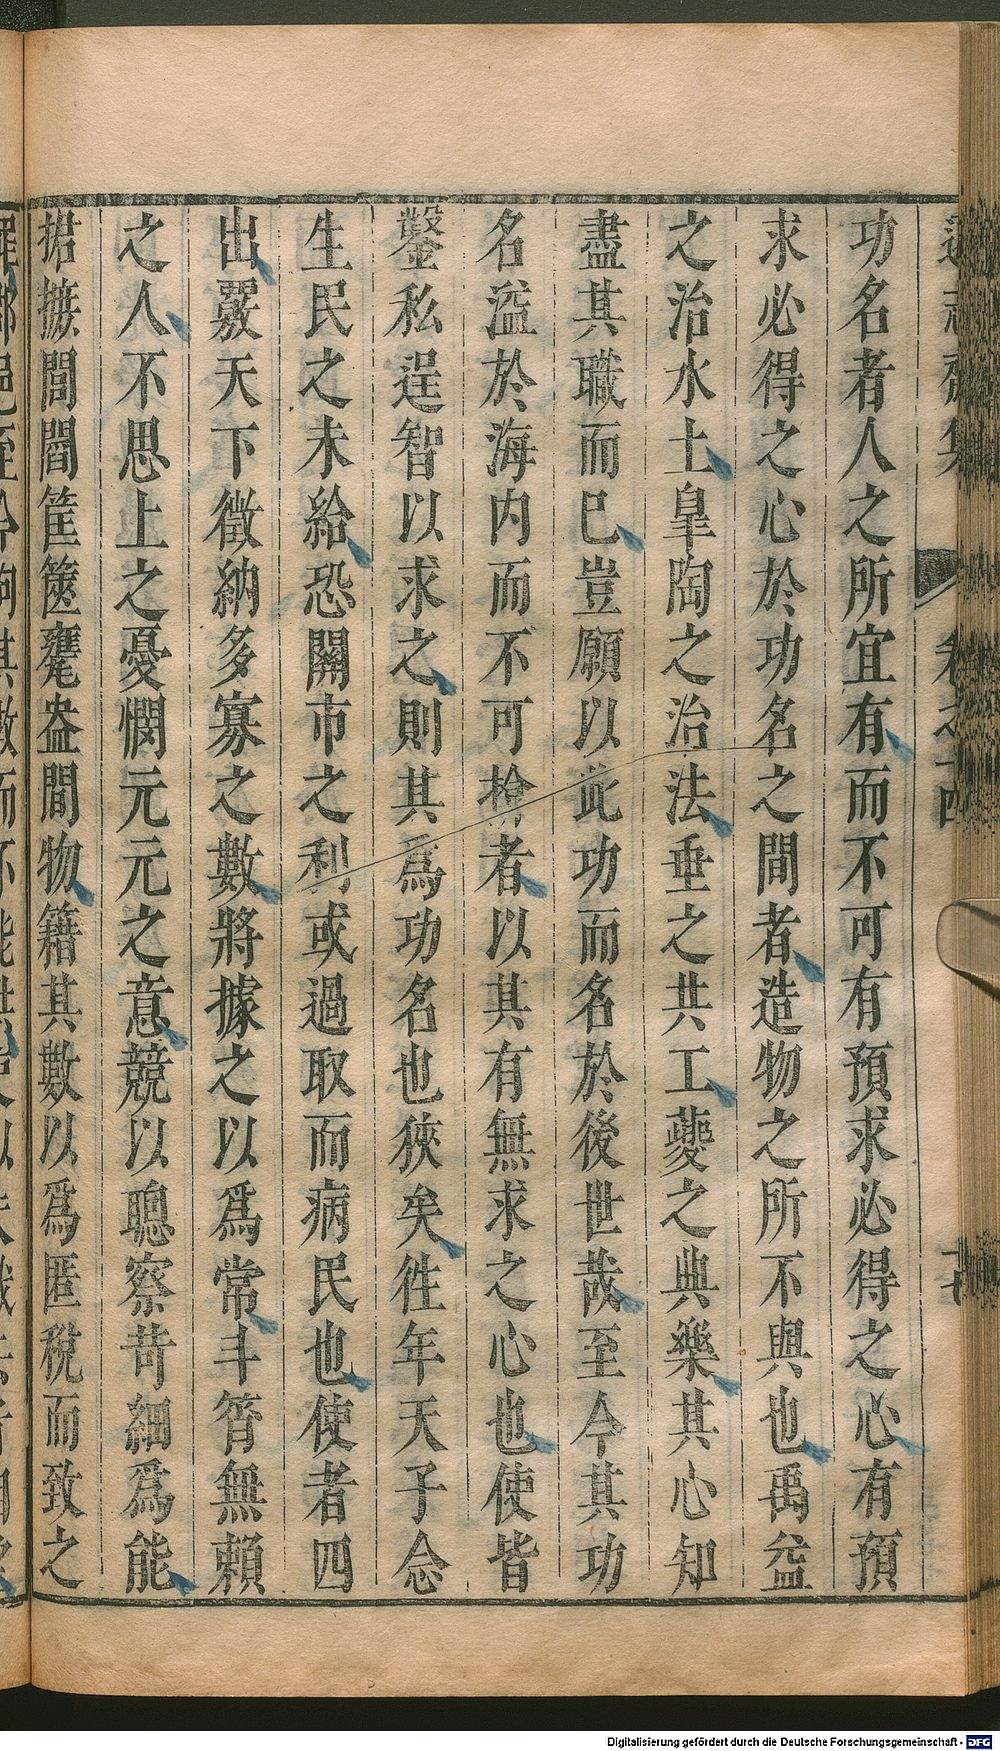 功名者人之所宜有而不可有預求必得之心有預
求必得之心於功名之間者造物之所不與也禹益
之治水土臯陶之治法垂之共工夔之典樂其心知
盡其職而已豈願以此功而名於後世哉至今其功
名溢於海内而不可揜者以其有無求之心也使皆
鑿私逞智以求之則其爲功名也狹矣徃年天子念
生民之未給恐關市之利或過取而病民也使者四
出覈天下徵納多寡之數將據之以爲常斗筲無賴
之人不思上之憂憫元元之意競以聰察苛細爲能
捃摭閭閻筐篋甕盎間物籍其數以爲匿稅而致之
Digitalisierung gefördert durch die Deutsche Forschungsgemeinschaft - DFG